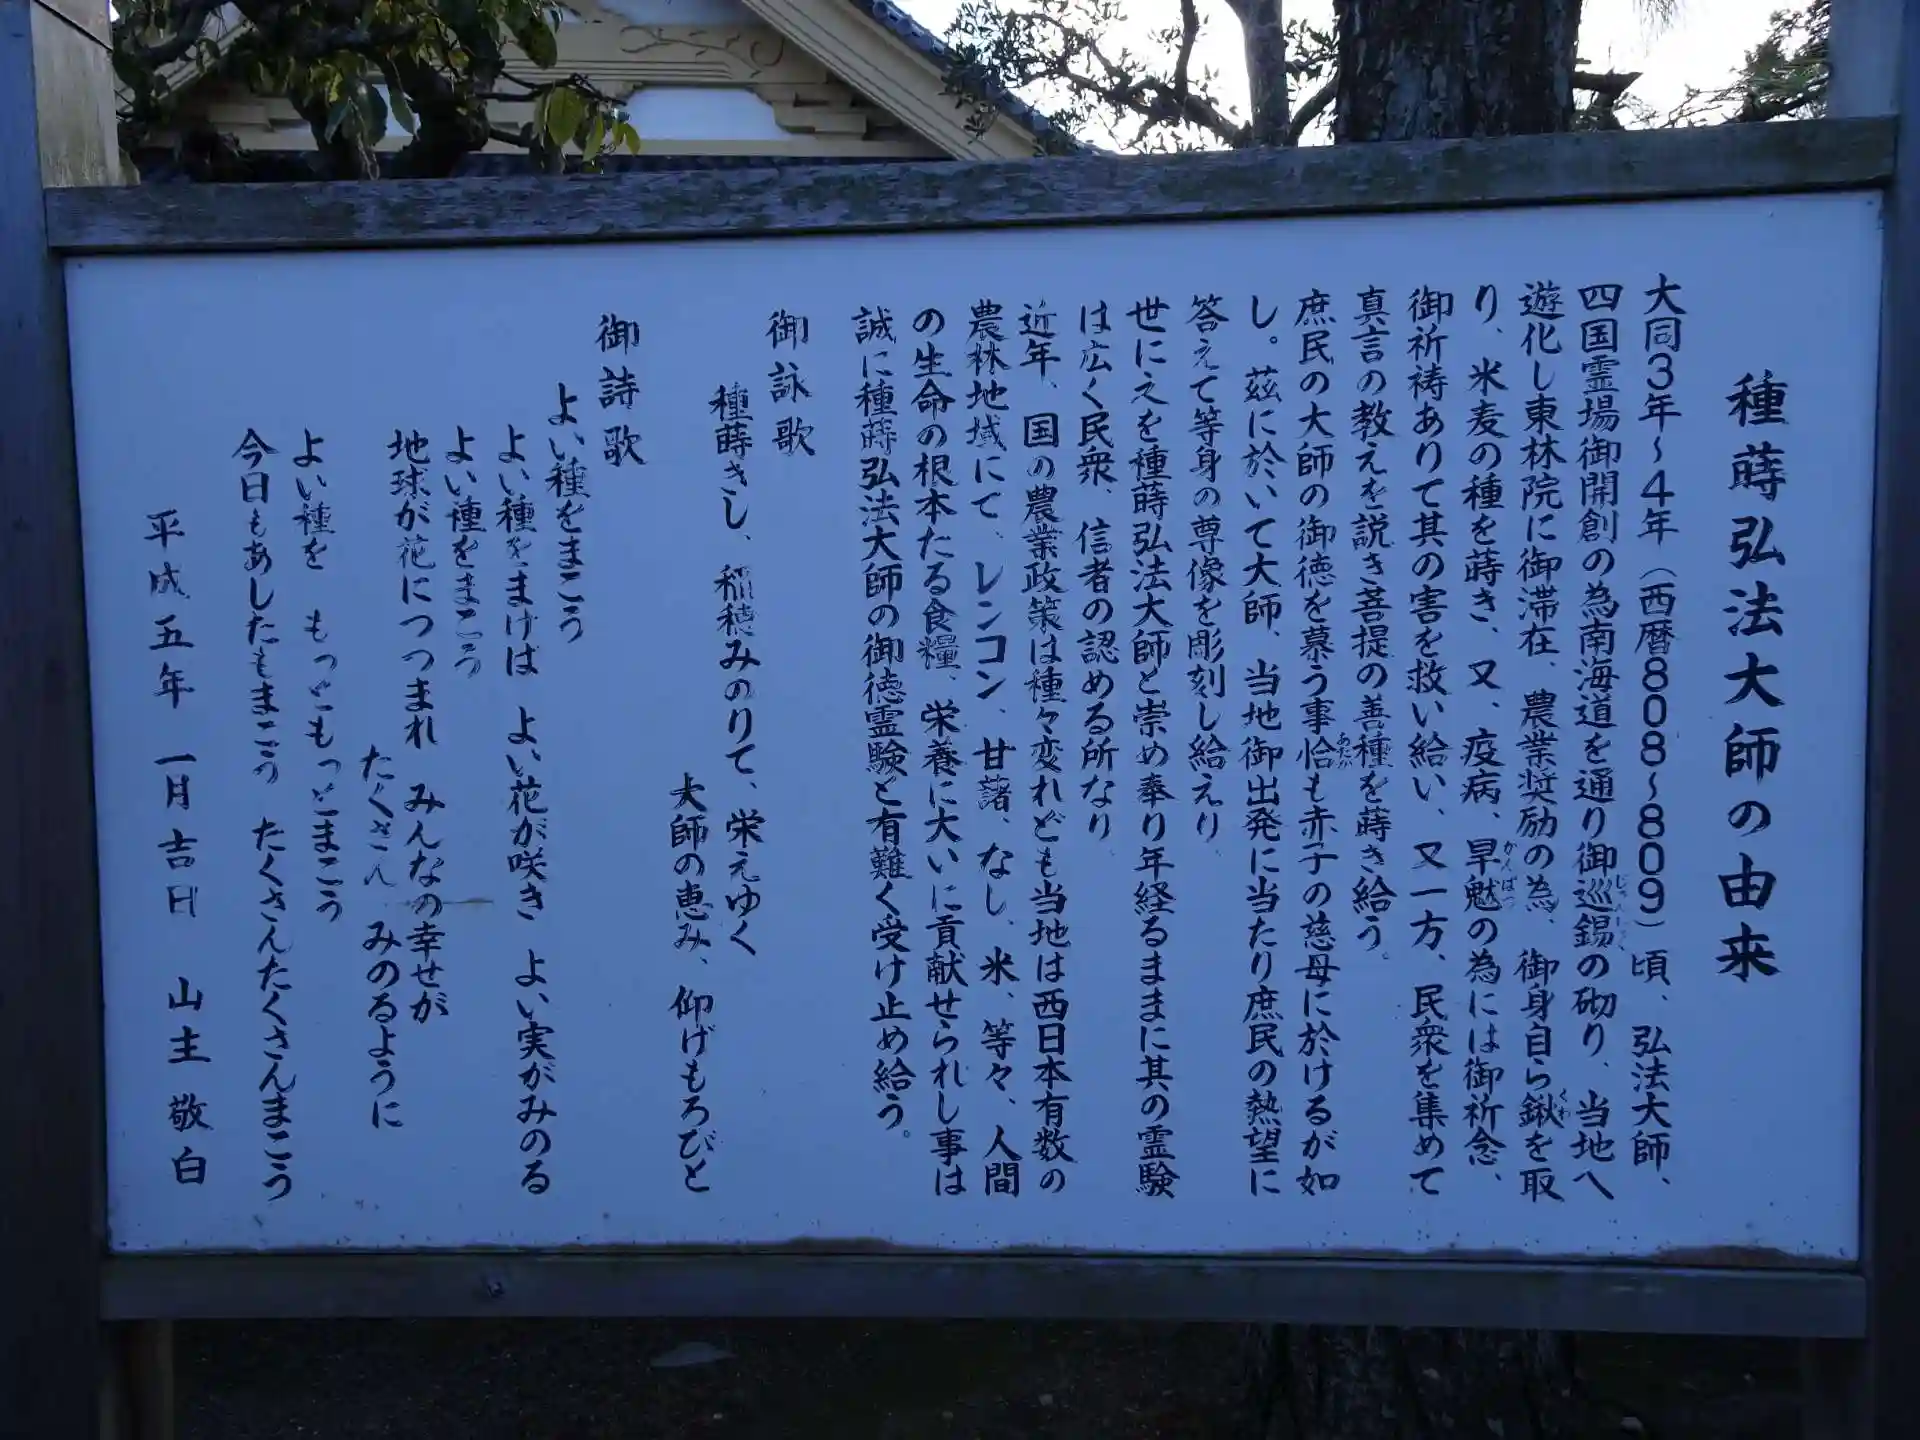 種蒔弘法大師の由来
大同3年~4年(西暦808~809)頃、弘法大師、
四国霊場御開創の為南海道を通り御巡錫の砌り、当地へ
遊化し東林院に御滞在、農業奨励の為、御身自ら鍬を取
り、米麦の種を蒔き、又、疫病、旱魃の為には御祈念、
御祈祷ありて其の害を救い給い、又一方、民衆を集めて
真言の教えを説き菩提の善種を蒔き給う。
庶民の大師の御徳を慕う事恰も赤子の慈母に於けるが如
し。茲に於いて大師、当地御出発に当たり庶民の熱望に
答えて等身の尊像を彫刻し給えり
世に之を種蒔弘法大師と崇め奉り年経るままに其の霊験
は広く民衆、信者の認める所なり
近年、国の農業政策は種々変れども当地は西日本有数の
農林地域にて、レンコン、甘藷、なし、米、等々、人間
の生命の根本たる食糧、栄養に大いに貢献せられし事は
誠に種蒔弘法大師の御徳霊験と有難く受け止め給う。
御詠歌
種蒔きし、稲穂みのりて、栄えゆく
大師の恵み、仰げもろびと
御詩歌
よい種をまこう
よい種をまけば よい花が咲き よい実がみのる
よい種をまこう
地球が花につつまれ みんなの幸せが
たくさん みのるように
よい種を もっともっとまこう
今日もあしたもまこう たくさんたくさんまこう
平成五年 一月吉日 山主 敬白